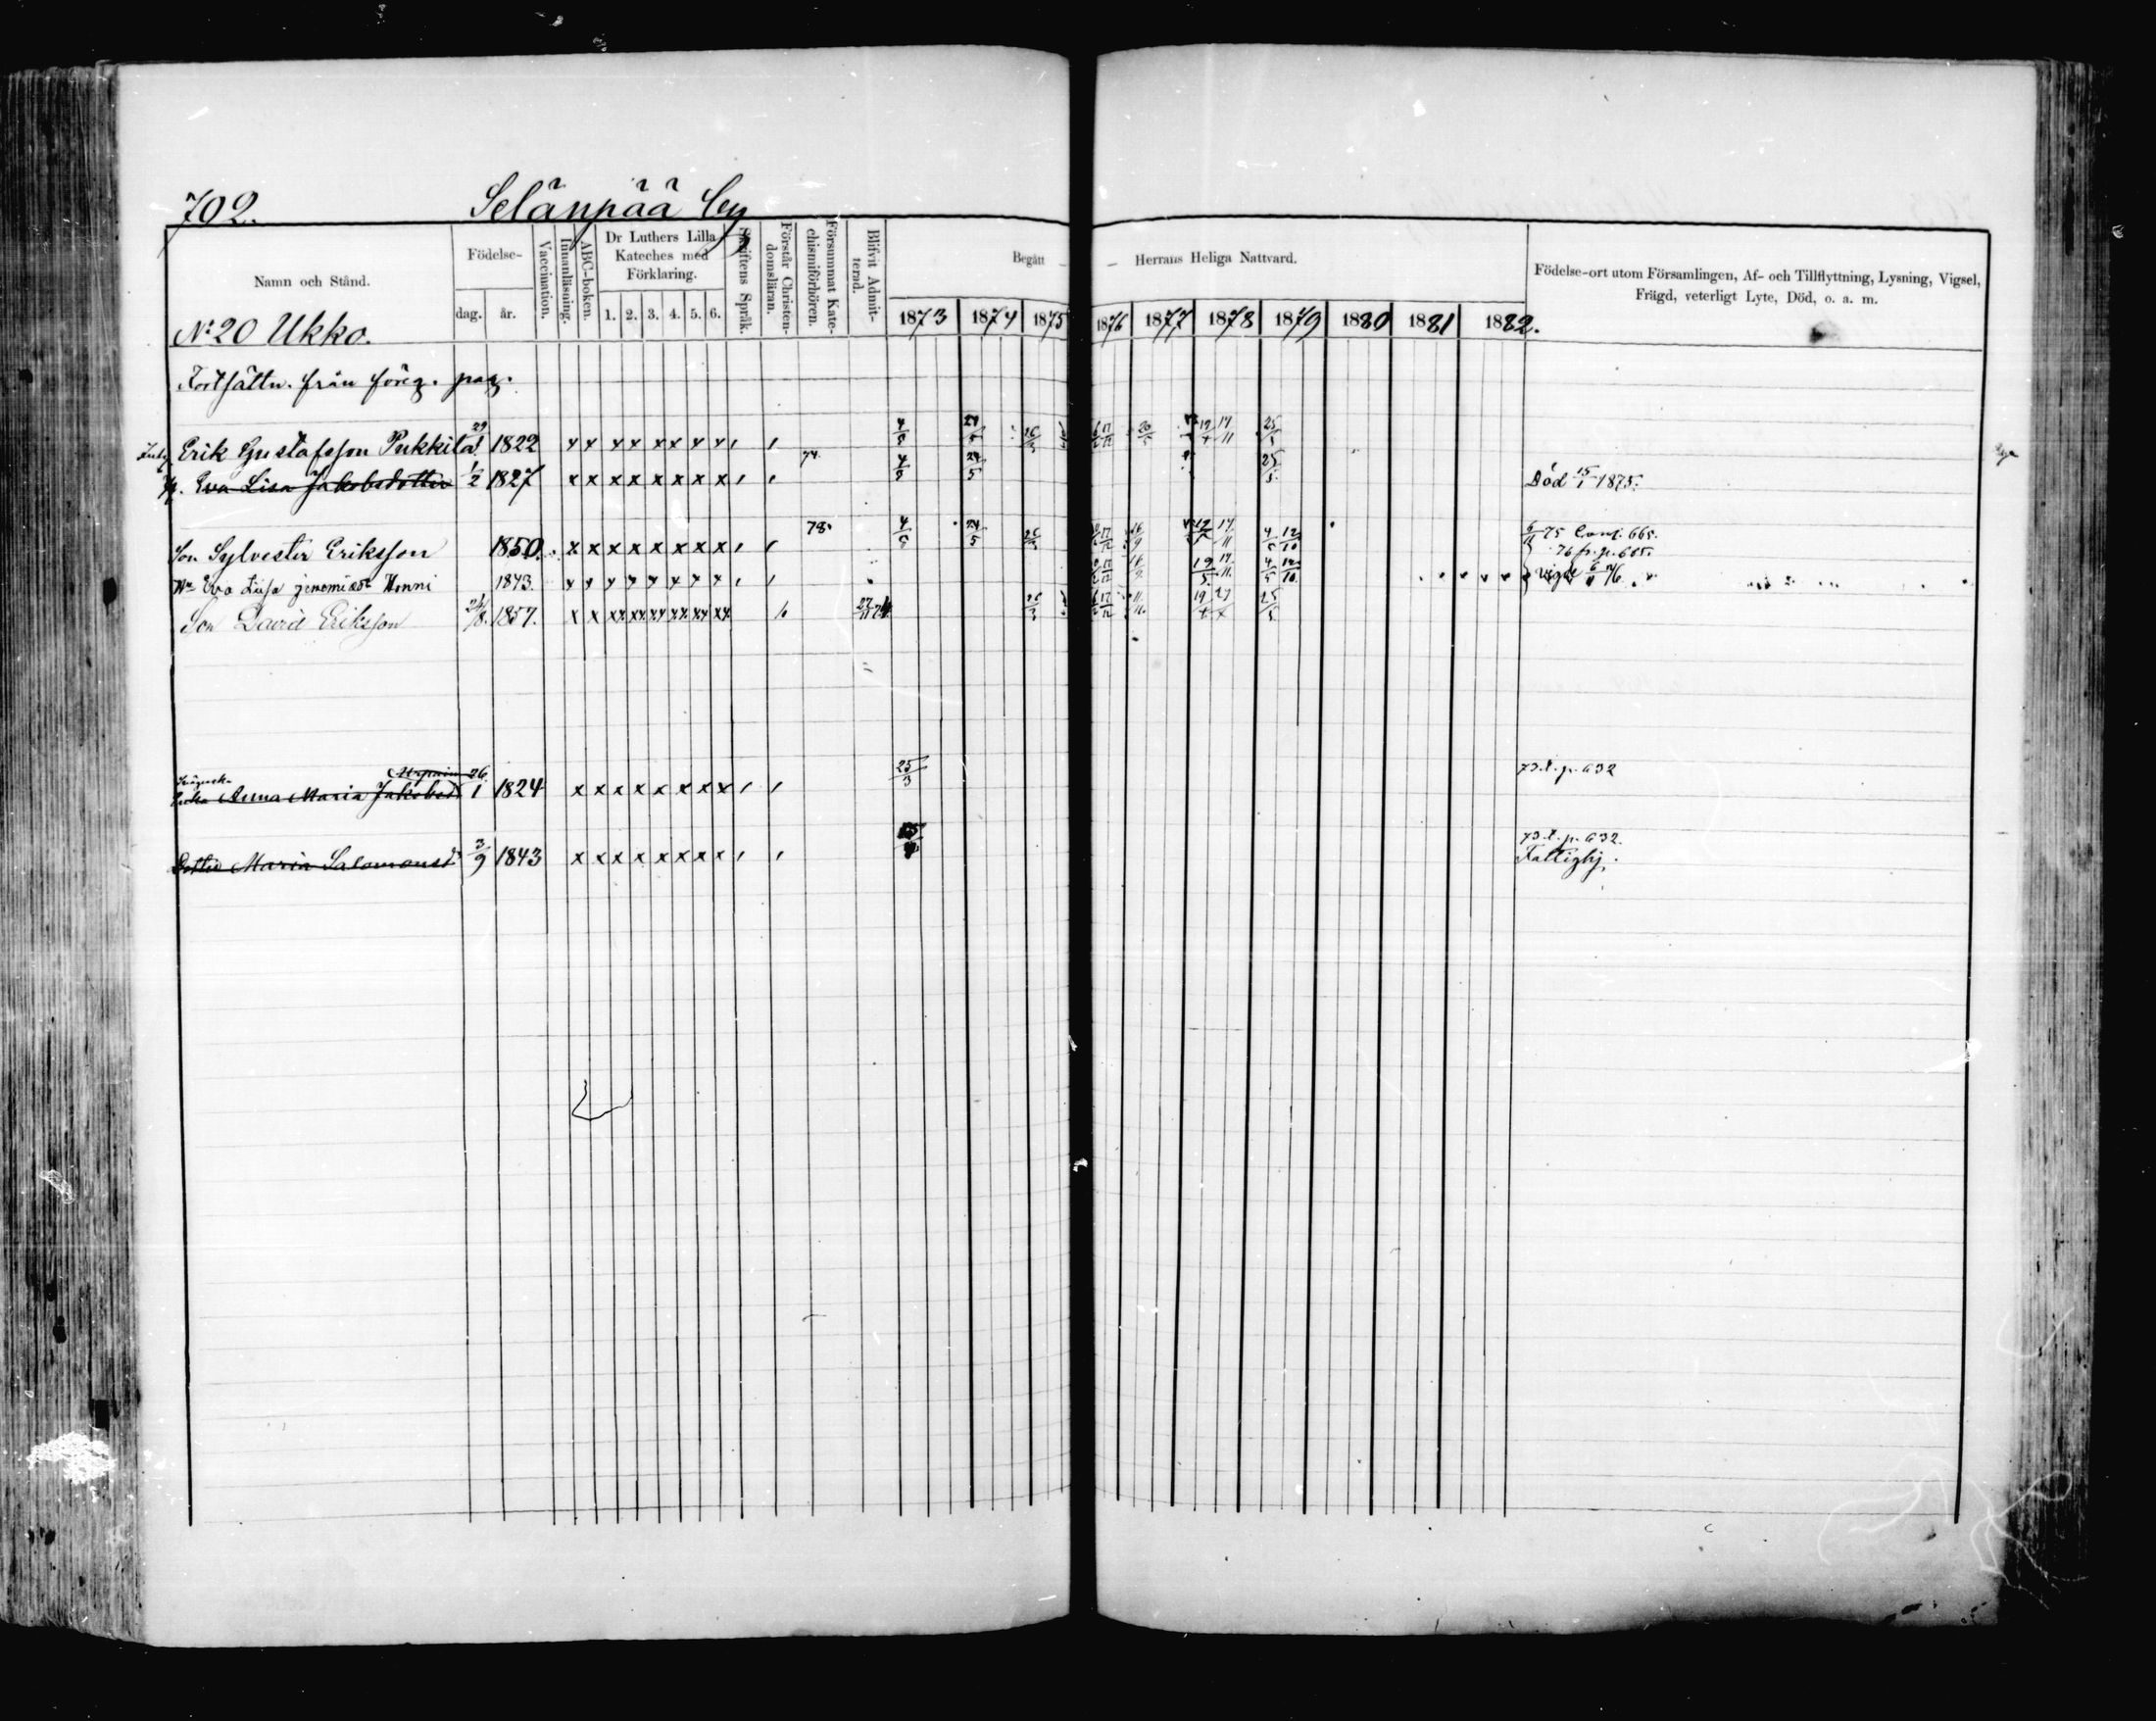 702. Selänpää by
Namn och Stånd.
Födelse-
dag. år.
Vaccination.
Innanläsning.
ABC-boken.
Dr Luthers Lilla
Kateches med
Förklaring.
1. 2. 3. 4. 5. 6.
Skriftens Språk.
Förstår Christen-
domsläran.
Försummat Kate-
chismiförhören.
Blifvit Admit-
terad.
Begått Herrans Heliga Nattvard.
1873 1874 1875 1876 1877 1878 1879 1880 1881 1882.
Födelse-ort utom Församlingen, Af- och Tillflyttning, Lysning, Vigsel,
Frägd, veterligt Lyte, Död, o. a. m.
No 20 Ukko.
Fortsättn. från föreg. pag.
Erik Gustafsson Pukkila 1822 x x x x x x x x
H. Eva Lisa Jakobsdotter 1/2 1827 x x x x x x x x 74. 4/5 24/5 25/5 Död 15/1 1875.
Son Sylvester Eriksson 1850. x x x x x x x x 78. 4/5 24/5 4/5 12/10 6/11 75 665.
76 fr. p. 665.
Hu Eva Liisa Honni 1843. x x x x x x x x 19/5 4/5 12/10 vigde
Son David Eriksson 1857. x x xx xx xx xx xx xx 25/5
Anna Maria Jakobsd 26/1 1824 x x x x x x x x 25/3 73. t. p. 632
Dotter Maria Salomonsd 3/9 1843 x x x x x x x x 73. t. p. 632.
Fattighj.